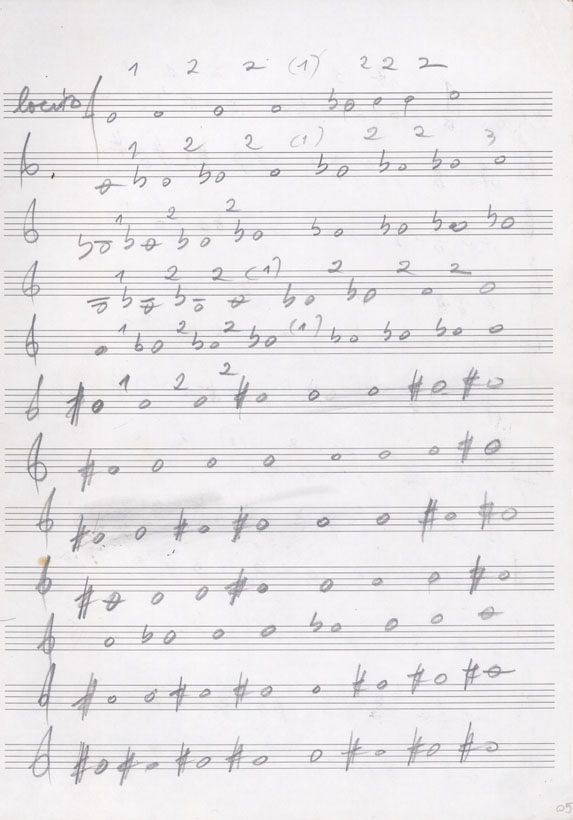 1 2 2 (1) 2 2 2
locrio
1 2 2 (1) 2 2 3
1 2 2
1 2 2 (1) 2 2 2
1 2 2 (1)
1 2 2
05